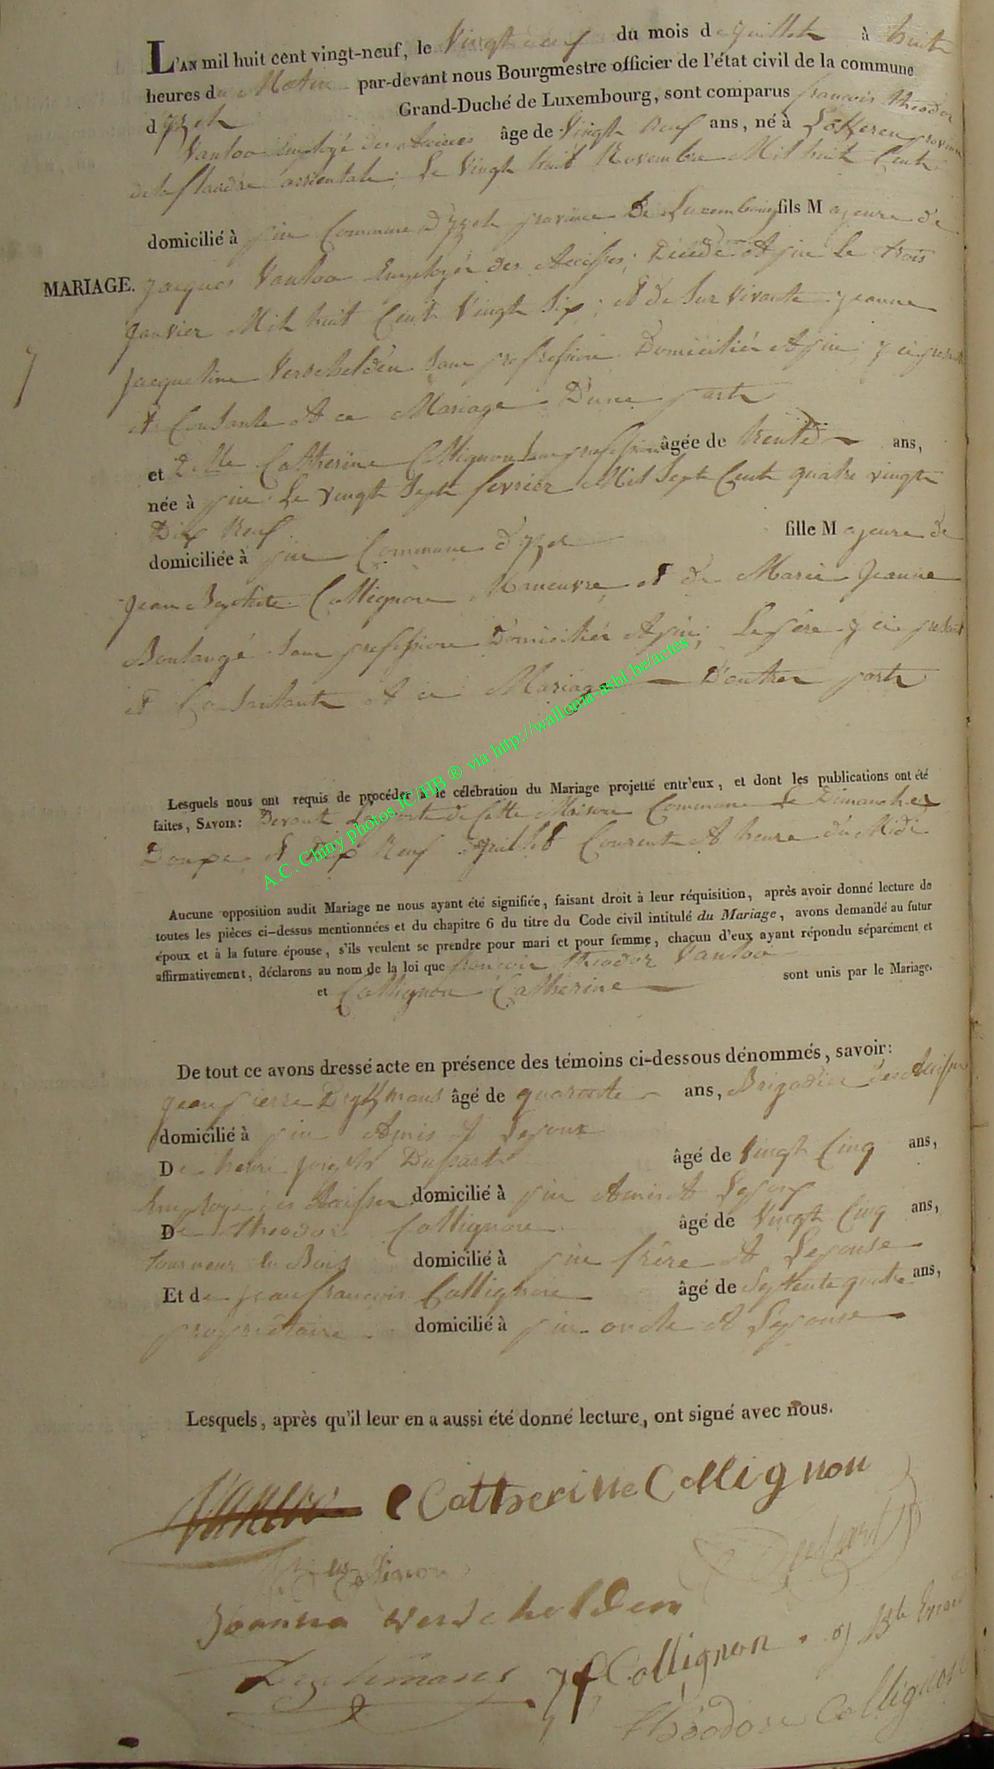 L'AN mil huit cent vingt-neuf, le Vingt neuf du mois de juillet à huit
heures du Matin par-devant nous Bourgmestre officier de l'état civil de la commune
d'yzel Grand-Duché de Luxembourg, sont comparus francois theodor
Vanloo Employé des âge de Vingt Neuf ans, né à Lokeren province
de la flandre orientale; Le Vingt huit Novembre Mil huit Cent
domicilié à pin Commune D'yzel province De Luxembourg fils Majeure de
MARIAGE.
jacques Vanloo Employér des Accises; Décédé A pin Le trois
janvier Mil huit Cent Vingt Six; et de Survivante jeanne
jacqueline Verschelden Sans profession Domiciliér A pin; y ci present
et Consante A ce Mariage D'une part
et Delle Catherine Collignon Sans profession âgée de trente ans,
née à pin Le vingt Sept fevrier Mil Sept Cent quatre vingt
Dix Neuf
domiciliée à pin Commune d'yzel fille Majeure de
Jean Baptiste Collignon Maneuvre et de Marie Jeanne
Boulangé Sans profession Domiciliér A pin; Le pére y ci present
et A ce Mariage D'autre part
Lesquels nous ont requis de procéder à le célébration du Mariage projetté entr'eux, et dont les publications ont été
faites, SAVOIR: Devant La porte de Cette Maison Commune Le Dimanche
Douze et Dix Neuf juillet Courent A heure du Midi
A.C. Chiny photos JC/HB ® via http://walloma-asbl.be/actes
Aucune opposition audit Mariage ne nous ayant été signifiée, faisant droit à leur réquisition, après avoir donné lecture de
toutes les pièces ci-dessus mentionnées et du chapitre 6 du titre du Code civil intitulé du Mariage, avons demandé au futur
époux et à la future épouse, s'ils veulent se prendre pour mari et pour femme, chacun d'eux ayant répondu séparément et
affirmativement, déclarons au nom de la loi que francois theodor Vanloo
et Collignon Catherine sont unis par le Mariage.
De tout ce avons dressé acte en présence des témoins ci-dessous dénommés, savoir:
jean pierre âgé de quarante ans, Brigadier des
domicilié à pin Amis A Lepoux
De henri joseph Dussart âgé de Vingt Cinq ans,
Employé des domicilié à pin Amis A
De theodor Collignon âgé de Vingt Cinq ans,
tourneur En Bois domicilié à pin frère A Lepouse
Et de jean francois Collignon âgé de Septente quatre ans,
proprietaire domicilié à pin oncle A Lepouse
Lesquels, après qu'il leur en a aussi été donné lecture, ont signé avec nous.
Vanloo Catherine Collignon
Dussart
Joanna verschelden
jf Collignon
Théodore Collignon